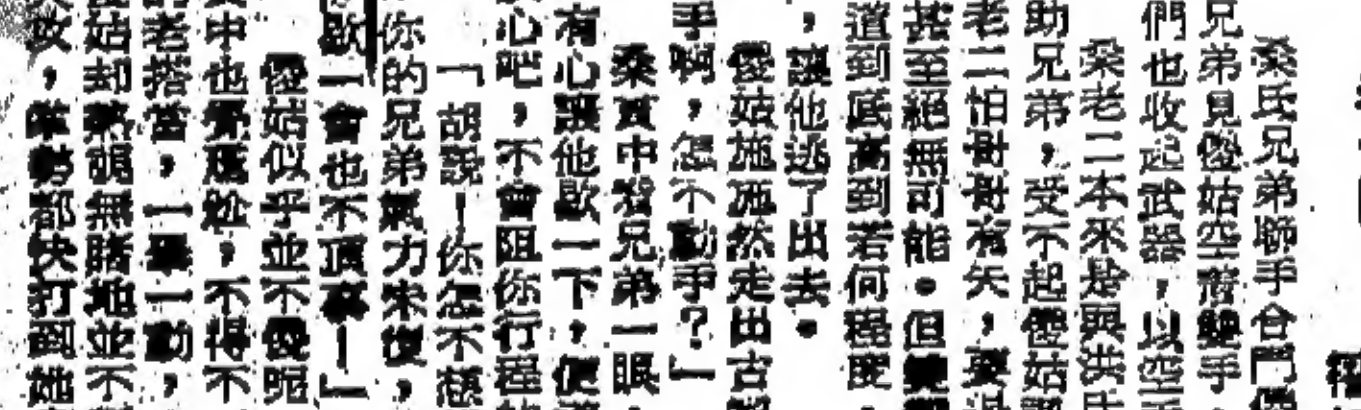 桑氏兄弟聯手合鬥傻
兄弟見傻姑空着雙手
們也收起武器，以空
桑老二本來是與洪
助兄弟，受不起傻姑
老二怕哥哥有失，要
甚至絕無可能。但
道到底高到若何程度，
，讓他逃了出去。
傻姑施施然走出古
手啊，怎不動手？」
桑真中發兄弟一眼，
有心讓他歇一下，便
心吧，不會阻你行程
「胡說！你怎不
你的兄弟氣力未復，
歇一會也不頂事！」
傻姑似乎並不傻呢
中也覺尷尬，不得不
老搭當，一舉一動，
姑却熟視無睹地並不
攻，掌勢都快打到她